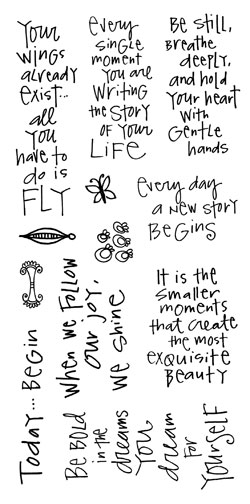 Your
wings
already
exist...
all
you
have to
do is
FLY
every
single
moment
you are
writing
the story
of your
LIFE
Be still,
Breathe
deeply,
and hold
your heart
with
Gentle
hands
every day
a new story
Begins
It is the
smaller
moments
that create
the most
exquisite
Beauty
Today... Begin
When we follow
our joy,
we shine
Be Bold
in the
dreams
you
dream
for
yourself